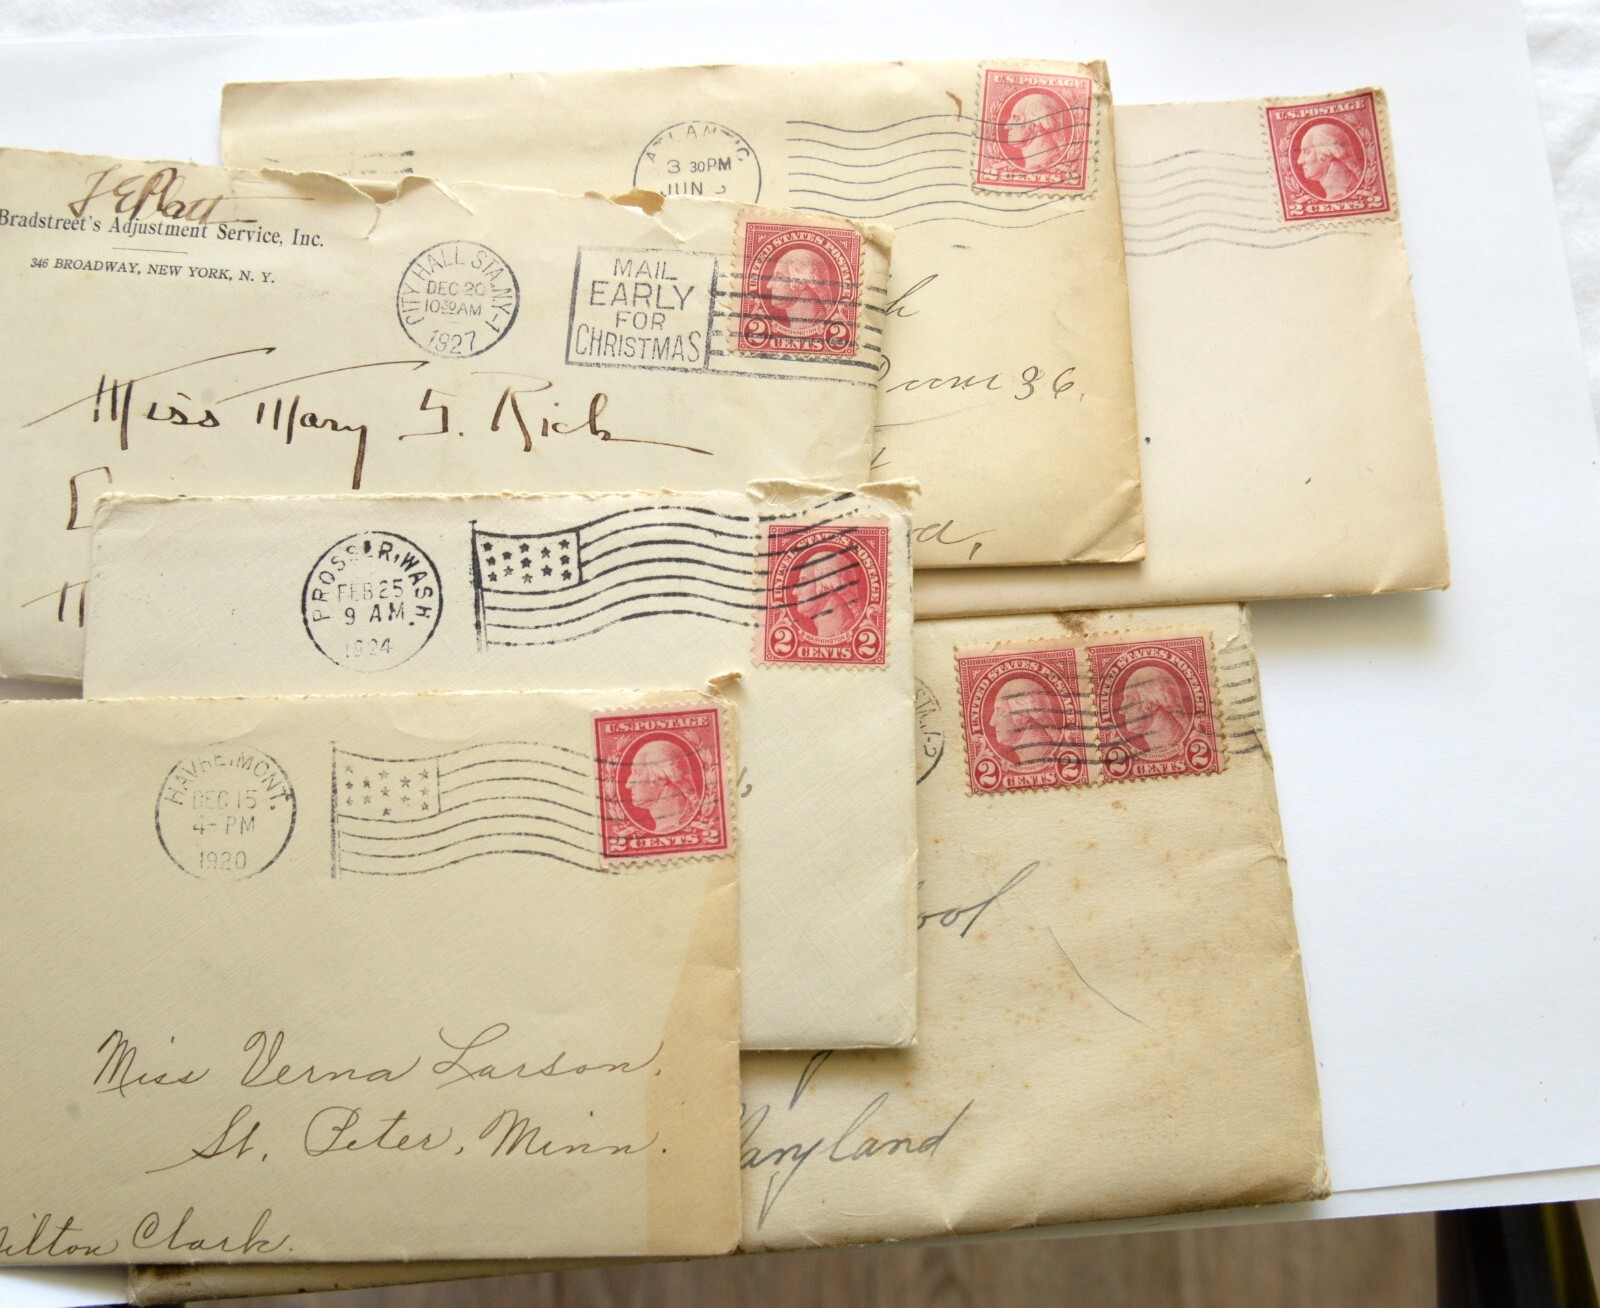 U.S. POSTAGE
2 CENTS 2
3 30 PM
JUN
36.
U.S. POSTAGE
2 CENTS 2
Bradstreet's Adjustment Service, Inc.
346 BROADWAY, NEW YORK, N. Y.
CITY HALL STA. N.Y.-1
DEC 20
10 30 AM
1927
MAIL
EARLY
FOR
CHRISTMAS
UNITED STATES POSTAGE
WASHINGTON
2 CENTS 2
Miss Mary S. Rich
PROSSER, WASH.
FEB 25
9 AM.
1924
UNITED STATES POSTAGE
WASHINGTON
2 CENTS 2
UNITED STATES POSTAGE
2 CENTS 2
UNITED STATES POSTAGE
2 CENTS 2
ool
Maryland
HAVRE, MONT.
DEC 15
4- PM
1920
U.S. POSTAGE
2 CENTS 2
Miss Verna Larson.
St. Peter, Minn.
Milton Clark.